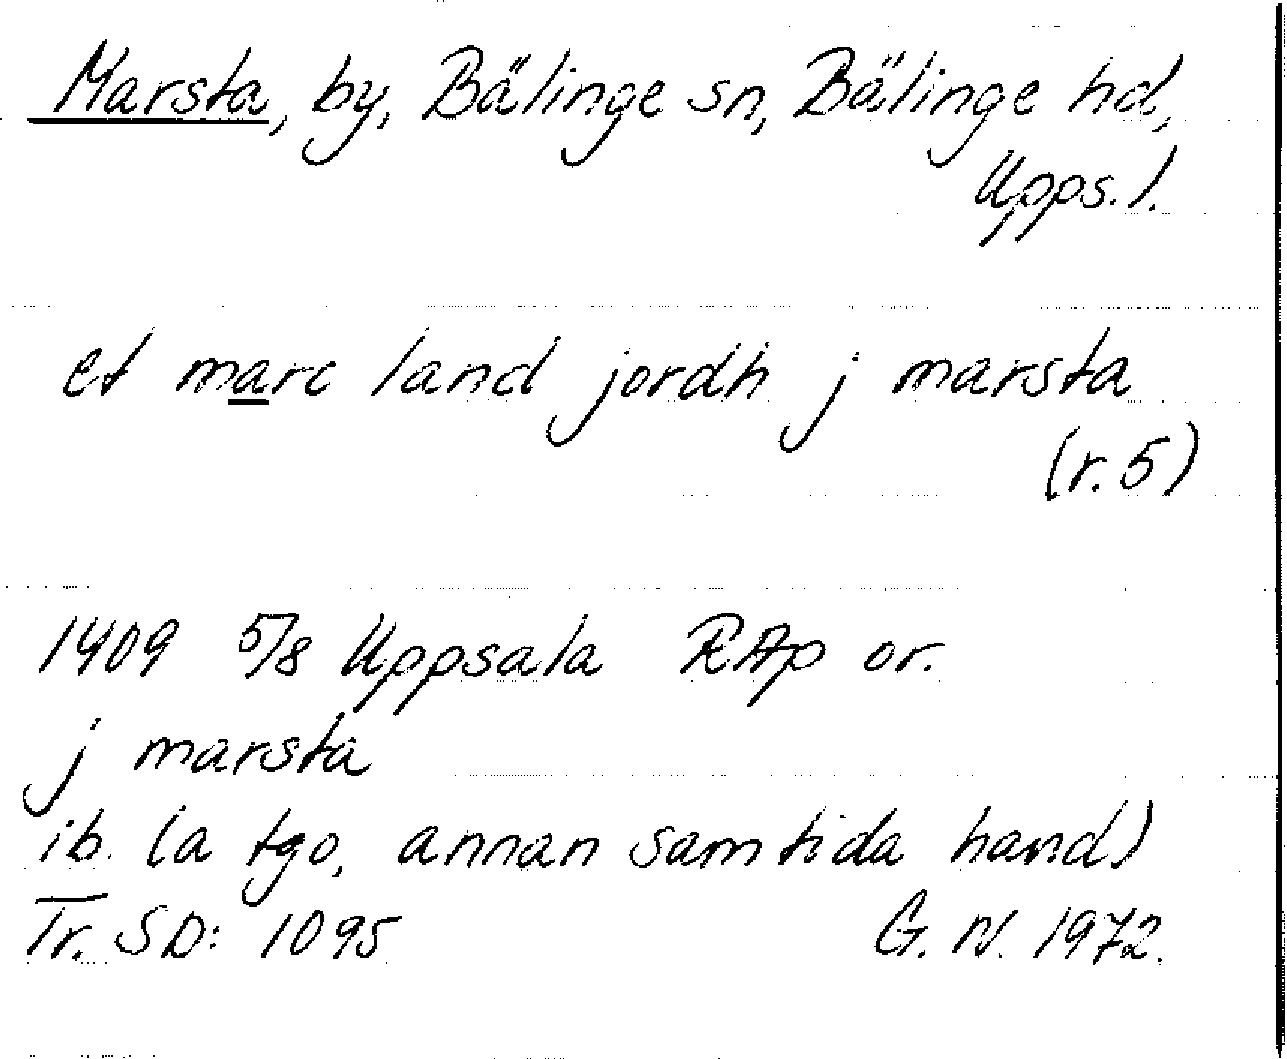 Marsta, by, Bälinge sn, Bälinge hd,
Upps. l.
et marc land jordh j marsta
(r. 5)
1409 5/8 Uppsala RAp or.
j marsta
ib. (a tgo, annan samtida hand)
Tr. SD: 1095 G. N. 1972.